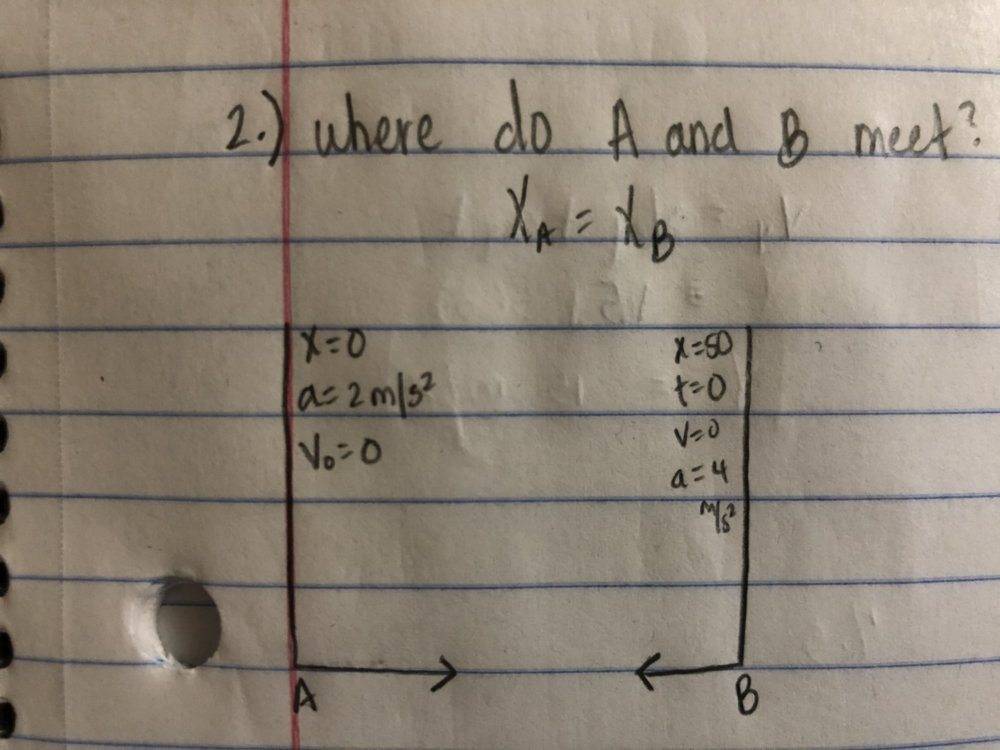 2.) where do A and B meet?
X_A = X_B
x=0
a=2m/s²
V₀=0
x=50
t=0
v=0
a=4
m/s²
A
B